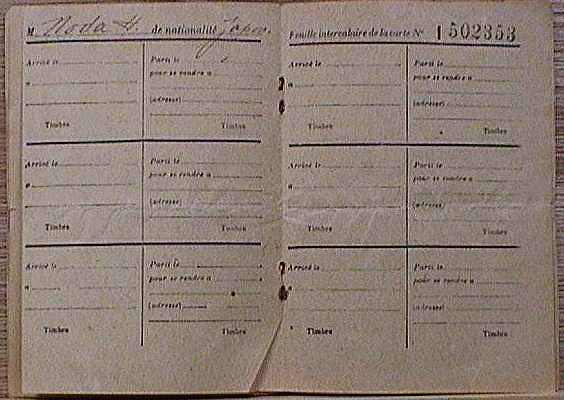 M. Noda H. de nationalité Japon.
Arrivé le Parti le
a pour se rendre a
(adresse)
Timbre Timbre
Arrivé le Parti le
a pour se rendre a
(adresse)
Timbre Timbre
Arrivé le Parti le
a pour se rendre a
(adresse)
Timbre Timbre
Feuille intercalaire de la carte N° 1502353
Arrivé le Parti le
a pour se rendre a
(adresse)
Timbre Timbre
Arrivé le Parti le
a pour se rendre a
(adresse)
Timbre Timbre
Arrivé le Parti le
a pour se rendre a
(adresse)
Timbre Timbre